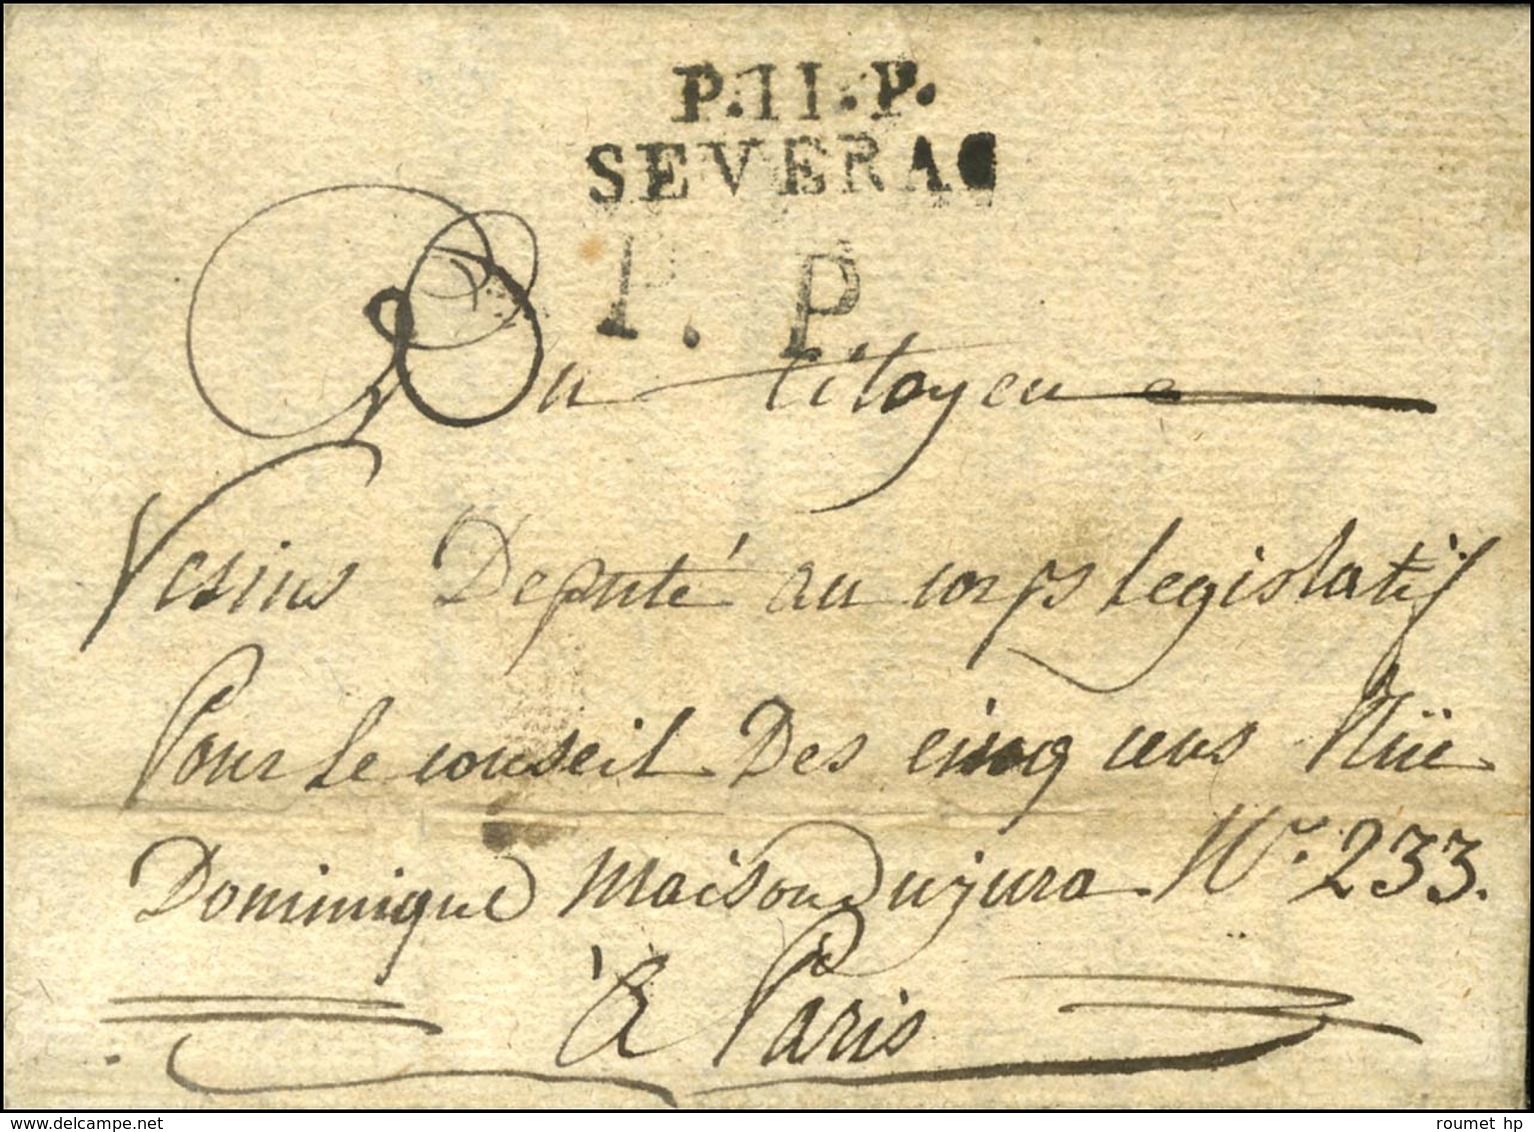 P.11.P.
SEVERAC
P. P.
Au Citoyen
Vesins Deputé au corps Legislatif
Pour le conseil Des cinq cens Rüe
Dominique maison Dujura No. 233.
à Paris
www.delcampe.net
roumet hp